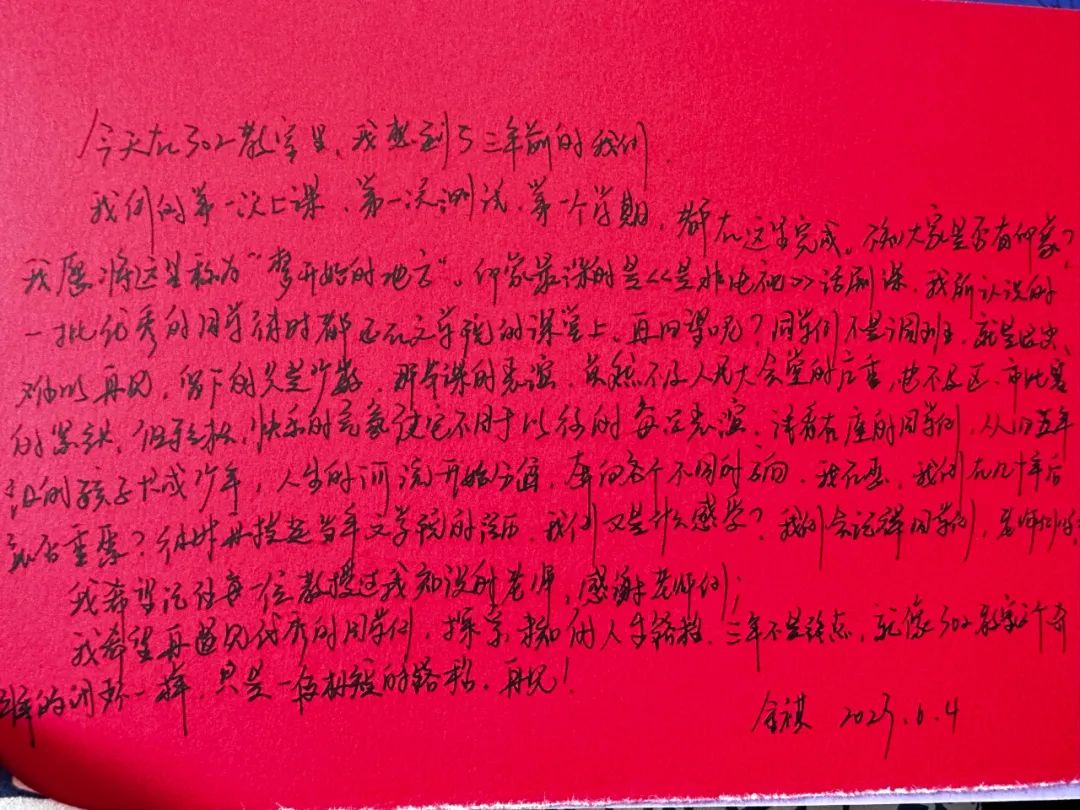 今天在302教室里,我想到了三年前的我们.
我们的第一次上课、第一次测试、第一个学期,都在这里完成。不知大家是否有印象?
我愿将这里称为“梦开始的地方”。印象最深的是《是非电视》话剧课,我所认识的
一批优秀的同学彼时都还在文学院的课堂上。再回望呢?同学们不是调班,就是
难以再见,留下的只是少数。那节课的表演,虽然不及人民大会堂的庄重,也不及区、市比赛
的紧张,但轻松、快乐的气氛使它不同于以往的每次表演。请看在座的同学们,从旧五年
的孩子长成少年,人生的河流开始分道,奔向各个不同的方向。我在想,我们在几十年后
能否重聚?彼时再提起当年文学院的,我们又是什么感学?我们会记得同学们,老师们吗
我希望记住每一位教授过我知识的老师,感谢老师们;
我希望再遇见优秀的同学们,探索求知的人生路. 三年不是终点,就像302教室这个
的闭环一样,只是一段极短的路程。再见!
2025.6.4